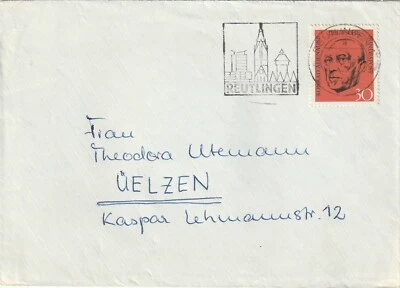 REUTLINGEN
30
Frau
Theodora Utemann
ÜELZEN
Kaspar Lehmannstr. 12